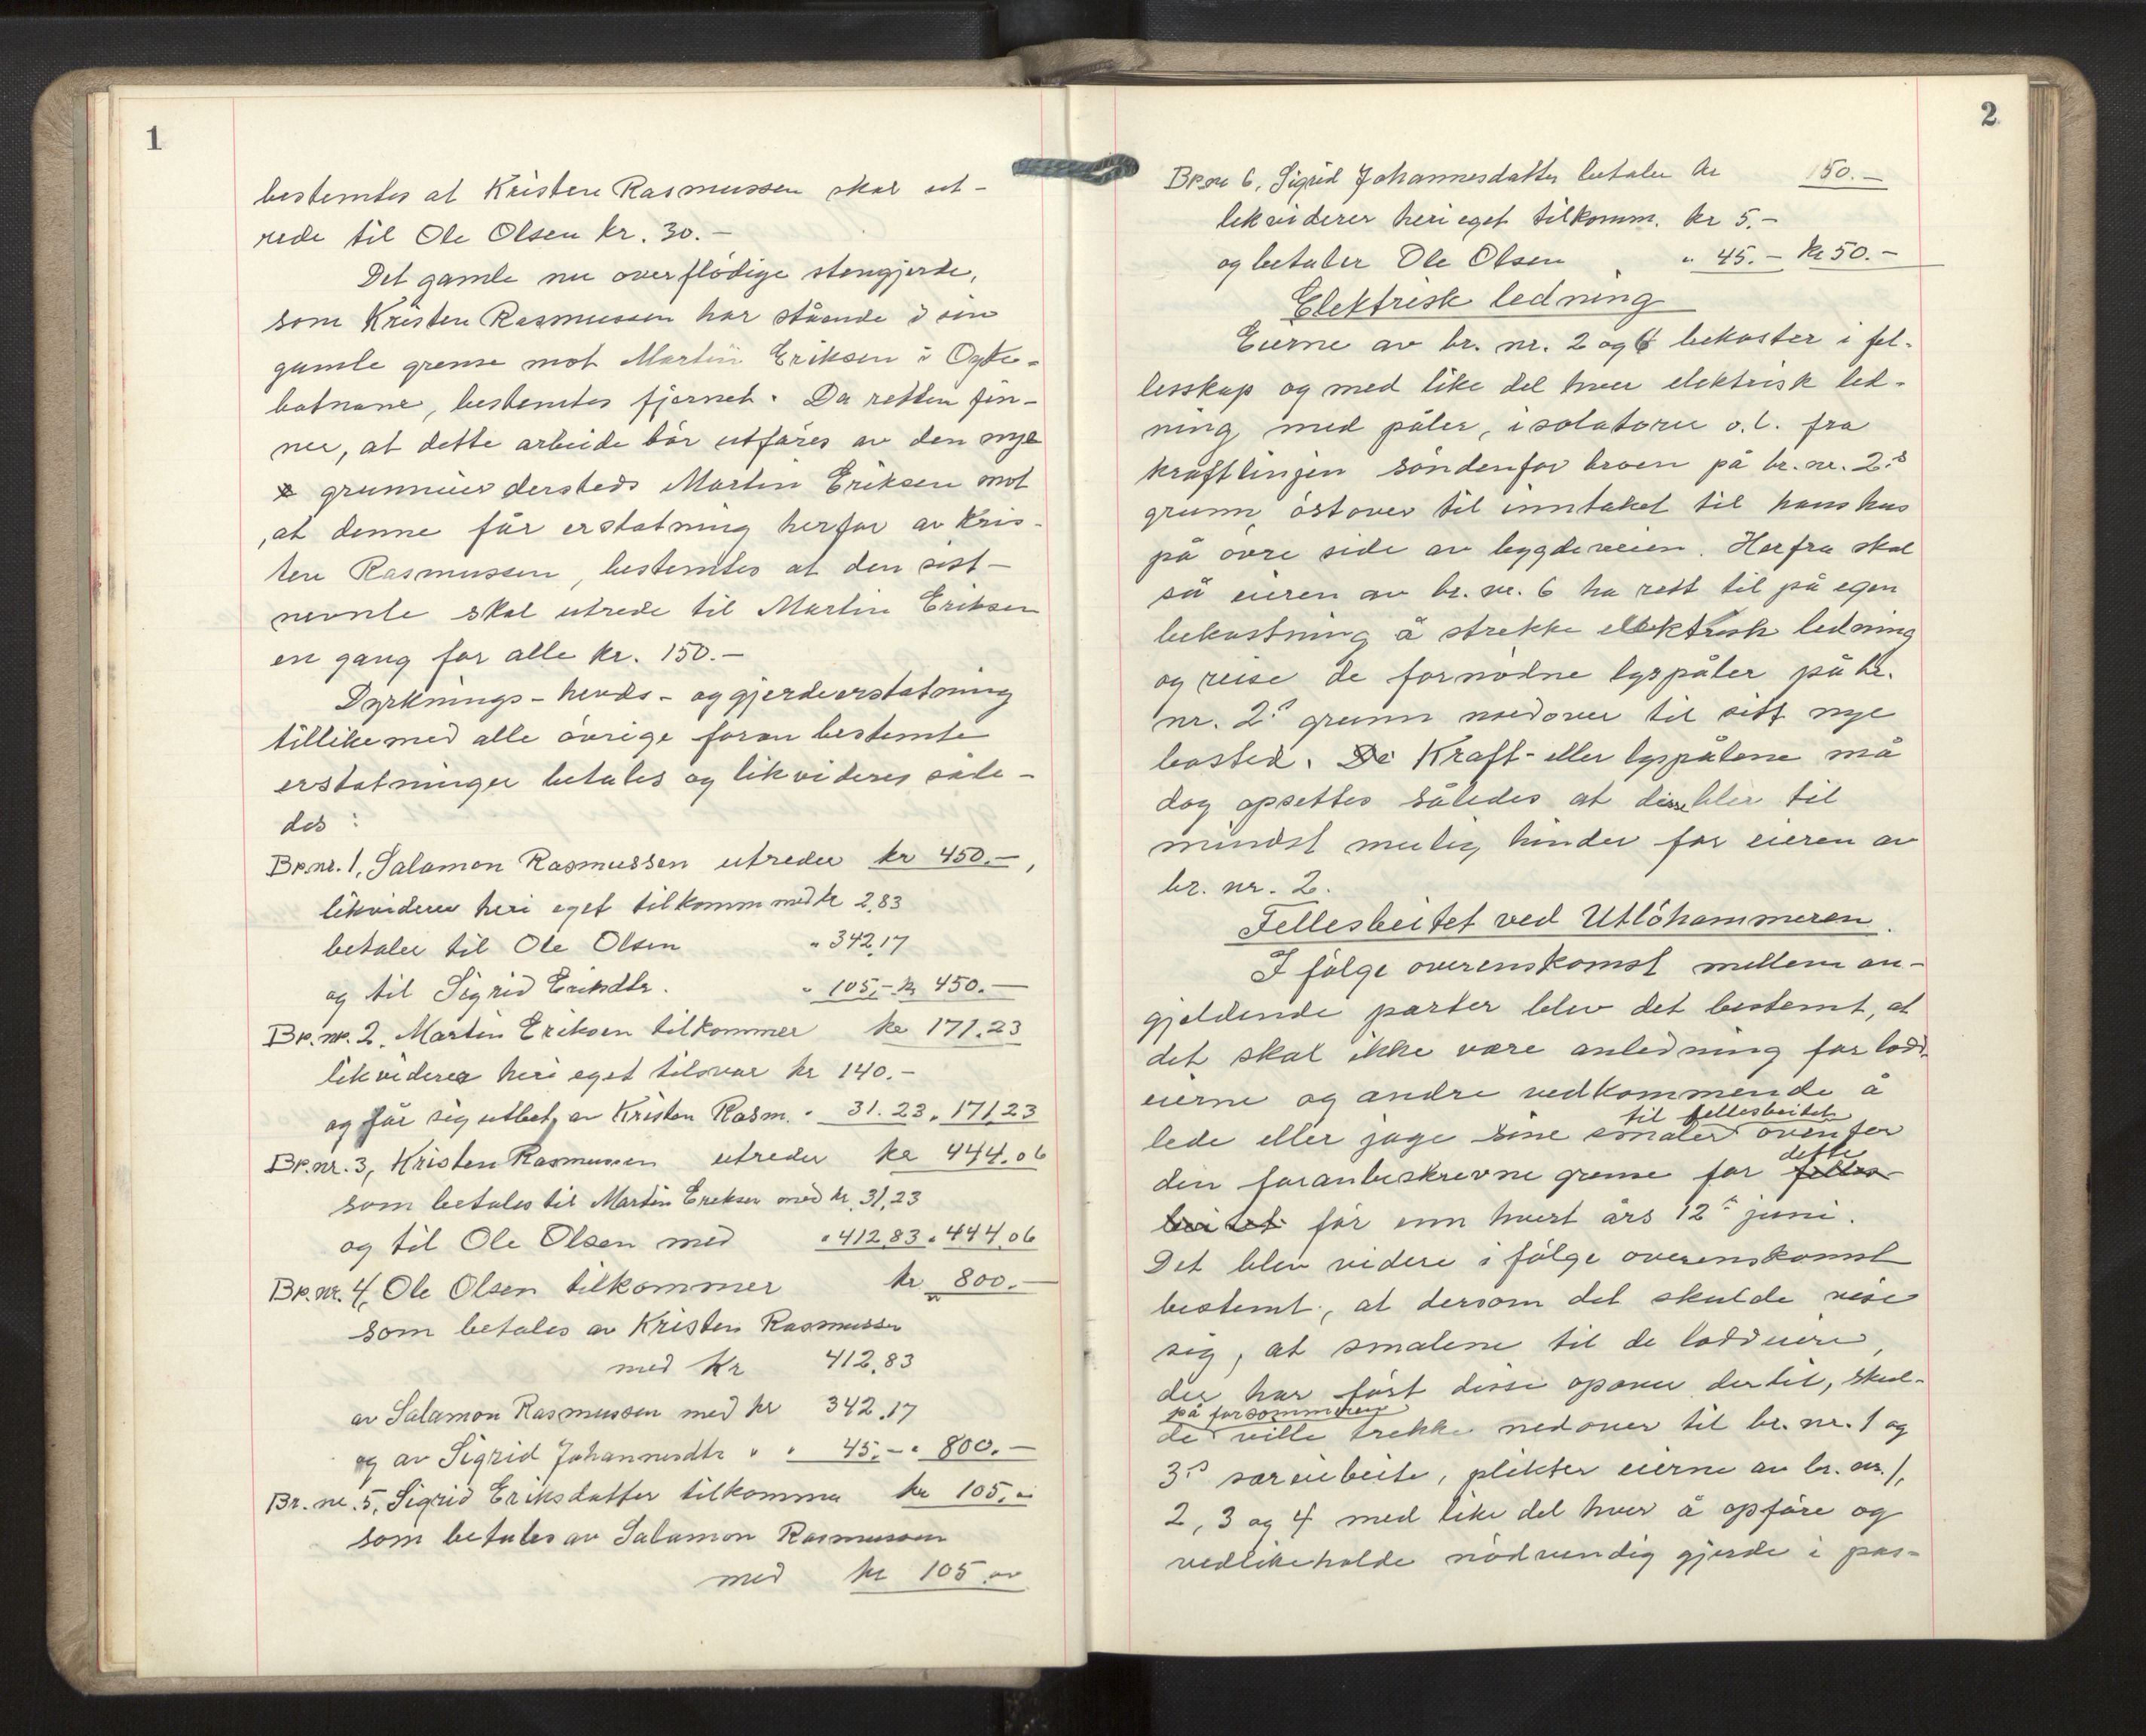 1
bestemtes at Kristen Rasmussen skal ut-
rede til Ole Olsen kr. 30.-
Det gamle nu overflödige stengjerde,
som Kristen Rasmussen har stående i sin
gamle grense mot Martin Eriksen i
botnane, bestemtes fjernet. Da retten fin-
ner, at dette arbeide bör utföres av den nye
grunneier dersteds Martin Eriksen mot
, at denne får erstatning herfor av Kris-
ten Rasmussen, bestemtes at den sist-
nevnte skal utrede til Martin Eriksen
en gang for alle kr. 150.-
Dyrknings- hevds- og gjerdeerstatning
tillikemed alle övrige foran bestemte
erstatninger betales og likvideres såle-
des:
Br.nr. 1, Salamon Rasmussen utreder kr 450.-,
likviderer heri eget tilkomm med kr 2,83
betaler til Ole Olsen " 342,17
og til Sigrid Eriksdtr. " 105,- kr 450.-
Br. nr. 2. Martin Eriksen tilkommer kr 171.23
likviderer heri eget tilsvar kr 140.-
og får sig utbet. av Kristen Rasm. " 31.23 " 171,23
Br.nr. 3, Kristen Rasmussen utreder kr 444.06
som betales til Martin Eriksen med kr. 31,23
og til Ole Olsen med " 412,83 " 444,06
Br. nr. 4, Ole Olsen tilkommer kr 800.-
som betales av Kristen Rasmussen
med Kr 412,83
av Salamon Rasmussen med kr 342.17
og av Sigrid Johannesdtr " " 45,- " 800.-
Br. nr. 5, Sigrid Eriksdatter tilkommer kr 105,00
som betales av Salamon Rasmussen
med kr 105.00
2
Br.nr 6, Sigrid Johannesdatter betaler kr 150.-
likviderer heri eget tilkomm. kr 5.-
og betaler Ole Olsen " 45.- kr 50.-
Elektrisk ledning
Eierne av br. nr. 2 og 6 bekoster i fel-
lesskap og med like del hver elektrisk led-
ning med påler, isolatorer o.l. fra
kraftlinjen söndenfor broen på br. nr. 2's
grunn östover til inntaket til hans hus
på övre side av bygdeveien. Herfra skal
så eieren av br. nr. 6 ha rett til på egen
bekostning å strekke elektrisk ledning
og reise de fornödne lyspåler på br.
nr. 2's grunn nedover til sitt nye
bosted. De Kraft- eller lyspålene må
dog opsettes således at disse blir til
mindst mulig hinder for eieren av
br. nr. 2.
Fellesbeitet ved Utlöhammeren.
I fölge overenskomst mellem an-
gjeldende parter blev det bestemt, at
det skal ikke være anledning for lodd-
eierne og andre vedkommende å
til fellesbeitet
lede eller jage sine smaler ovenfor
dette
den foranbeskrevne grense for felles-
beitet för enn hvert års 12te juni.
Det blev videre i fölge overenskomst
bestemt, at dersom det skulde vise
sig, at smalene til de loddeiere,
der har fört disse opover dertil, skul-
på forsommeren
de ville trekke nedover til br. nr. 1 og
3's særeiebeite, plikter eierne av br. nr. 1,
2, 3 og 4 med like del hver å opföre og
vedlikeholde nödvendig gjerde i pas-